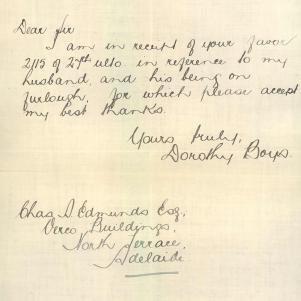 Dear Sir
I am in receipt of your favor
2/15 of 27th ulto. in reference to my
husband, and his being on
furlough, for which please accept
my best thanks.
Yours truly,
Dorothy Boys.
Chas. S. Edmunds Esq,
Verco Buildings,
North Terrace,
Adelaide